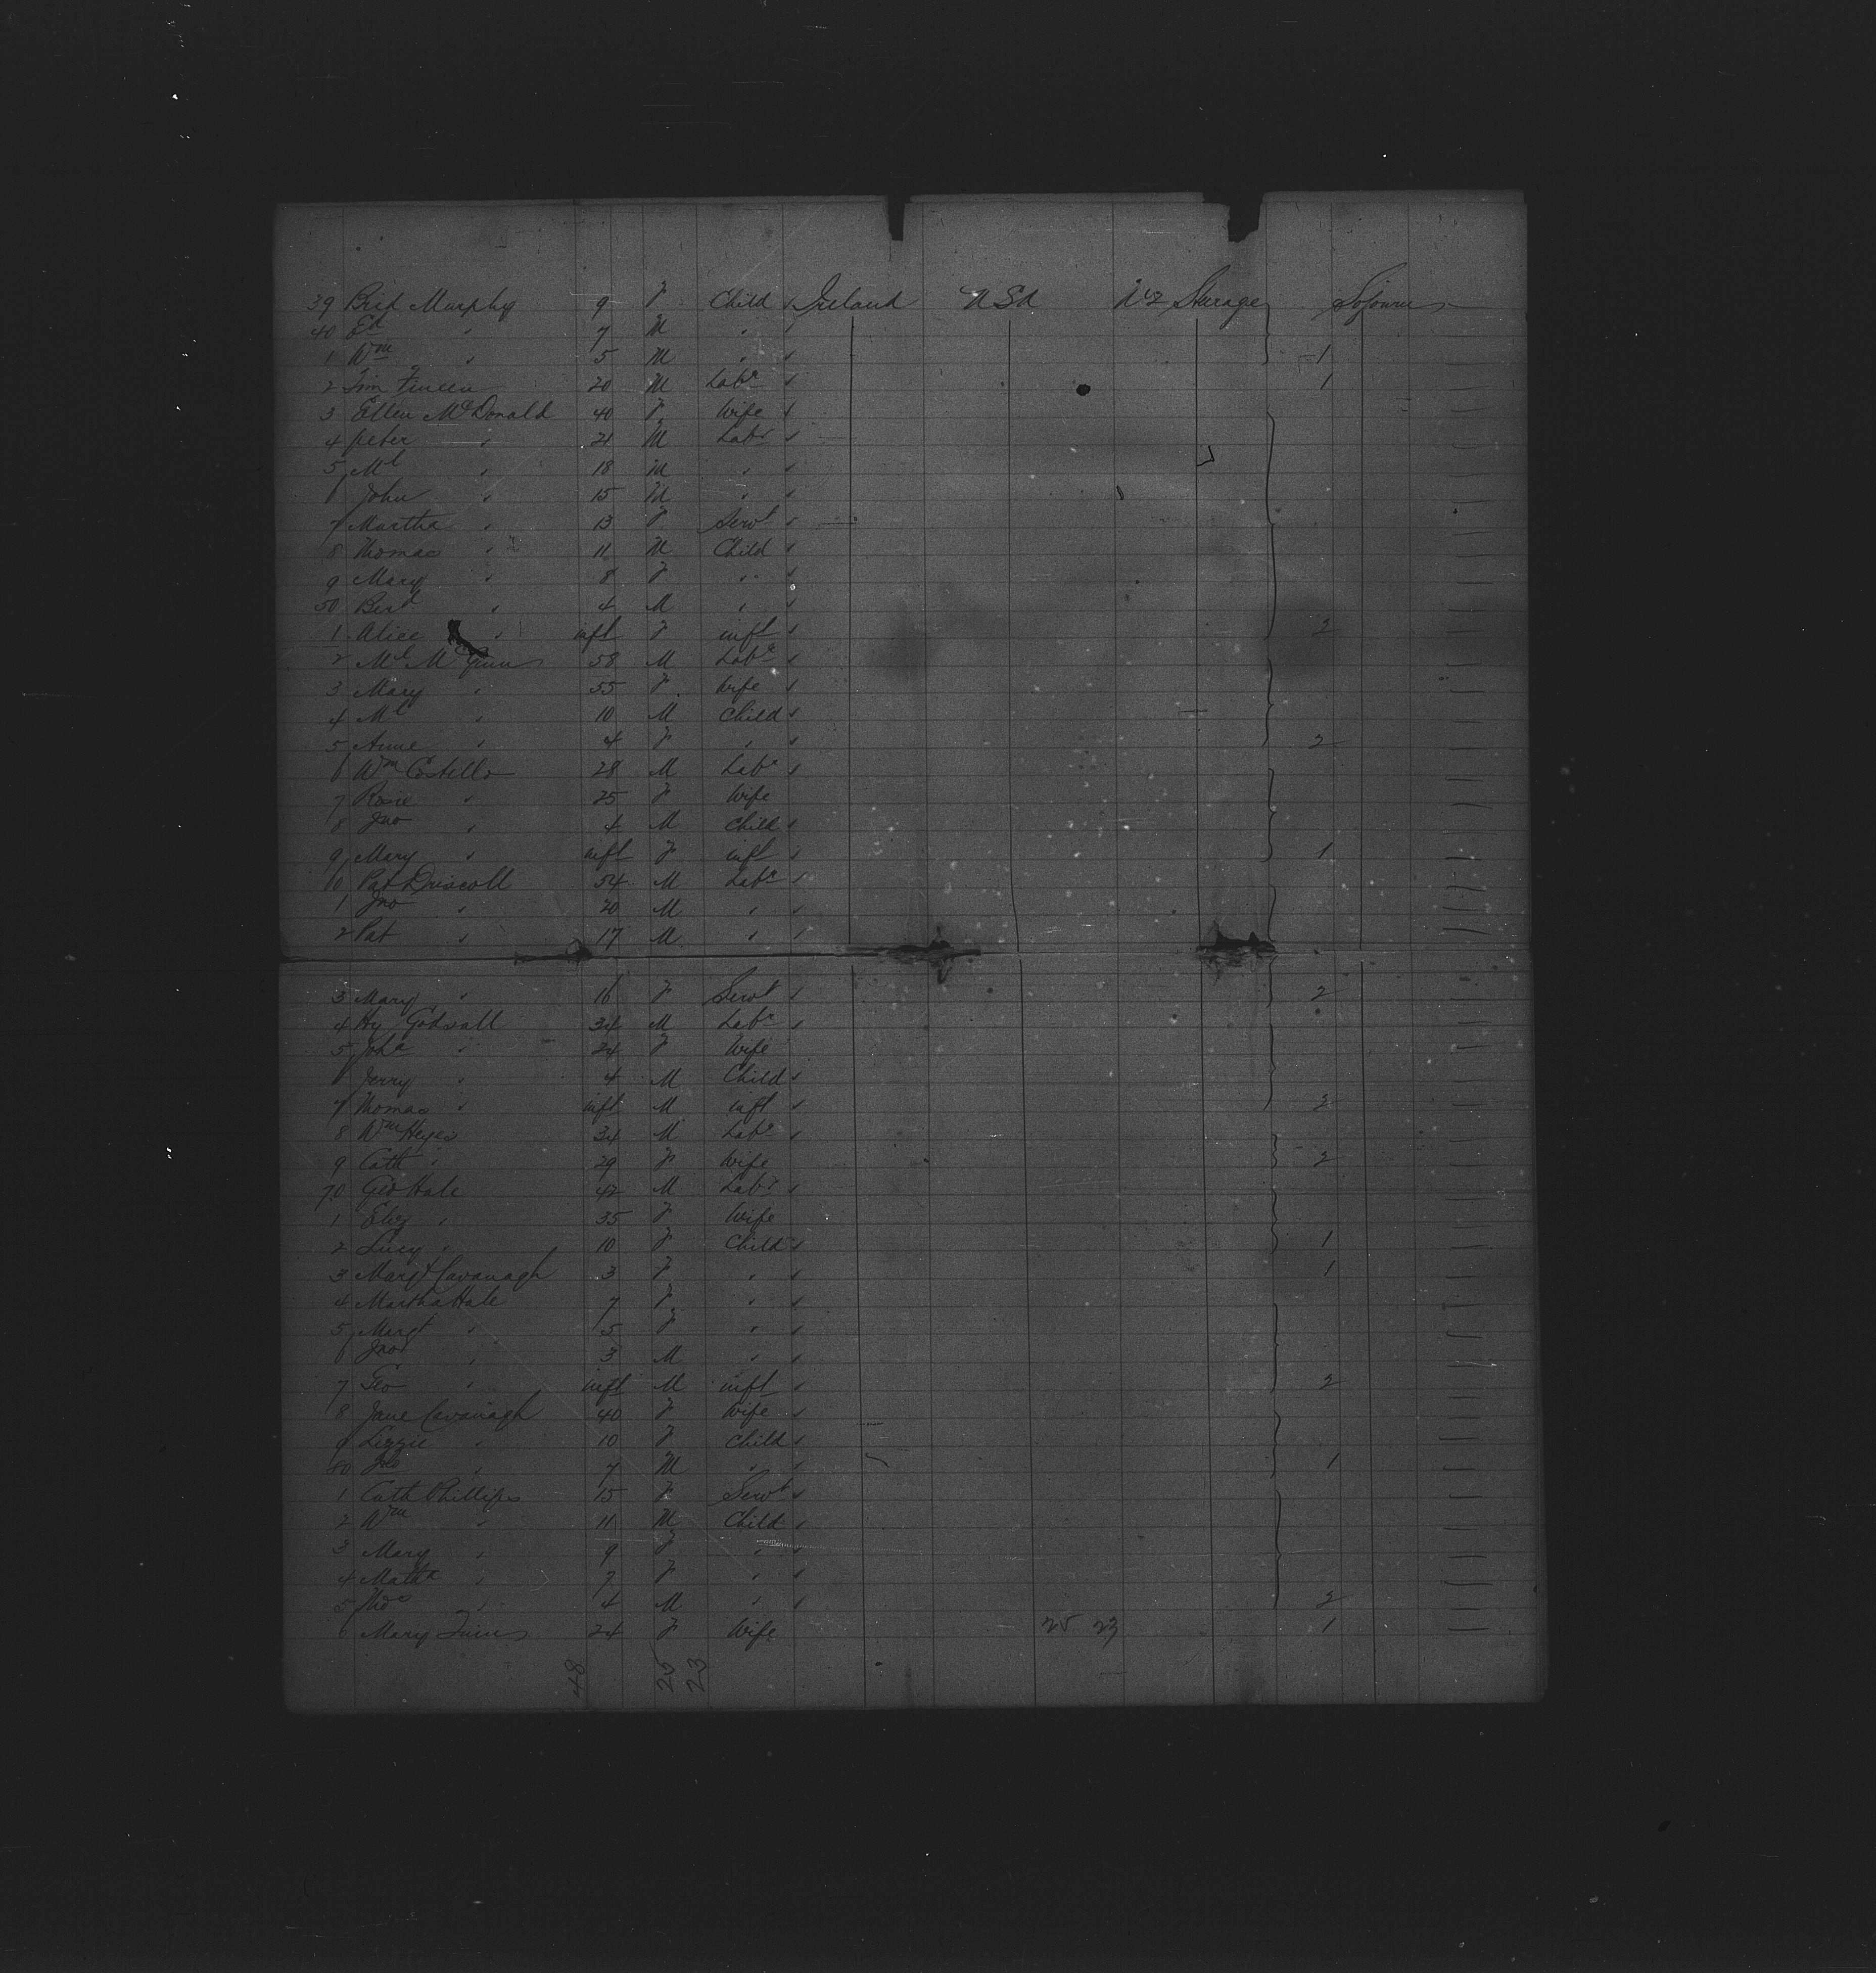 39 Brid Murphy 9 F Child Ireland USA No 2 Sturage Sojourn
40 Ed " 7 M "
1 Wm " 5 M " 1
2 Tim Fineen 20 M Labr 1
3 Ellen McDonald 40 F Wife
4 Peter " 21 M Labr
5 Ml " 18 M "
6 John " 15 M "
7 Martha " 13 F Servt
8 Thomas " 11 M Child
9 Mary " 8 F "
50 Berd " 4 M "
1 Alice " inft F inft 2
2 Ml McGinn 58 M Labr
3 Mary " 55 F Wife
4 Ml " 10 M Child
5 Anne " 4 F " 2
6 Wm Costello 28 M Labr
7 Rosie " 25 F Wife
8 Jno " 4 M Child
9 Mary " inft F inft 1
60 Pat Driscoll 54 M Labr
1 Jno " 20 M "
2 Pat " 17 M "
3 Mary " 16 F Servt 2
4 Hy Godsall 34 M Labr
5 Joha " 24 F Wife
6 Jerry " 4 M Child
7 Thomas " inft M inft 2
8 Wm Heyes 34 M Labr
9 Cath " 29 F Wife 2
70 Geo Hale 42 M Labr
1 Eliz " 35 F Wife
2 Lucy " 10 F Child 1
3 Margt Cavanagh 3 F " 1
4 Martha Hale 7 F "
5 Margt " 5 F "
6 Jno " 3 M "
7 Geo " inft M inft 2
8 Jane Cavanagh 40 F Wife
9 Lizzie " 10 F Child
80 Jno " 7 M " 1
1 Cath Phillips 15 F Servt
2 Wm " 11 M Child
3 Mary " 9 F "
4 Matha " 7 F "
5 Thos " 4 M " 2
6 Mary 24 F Wife 25 23 1
48 25 23